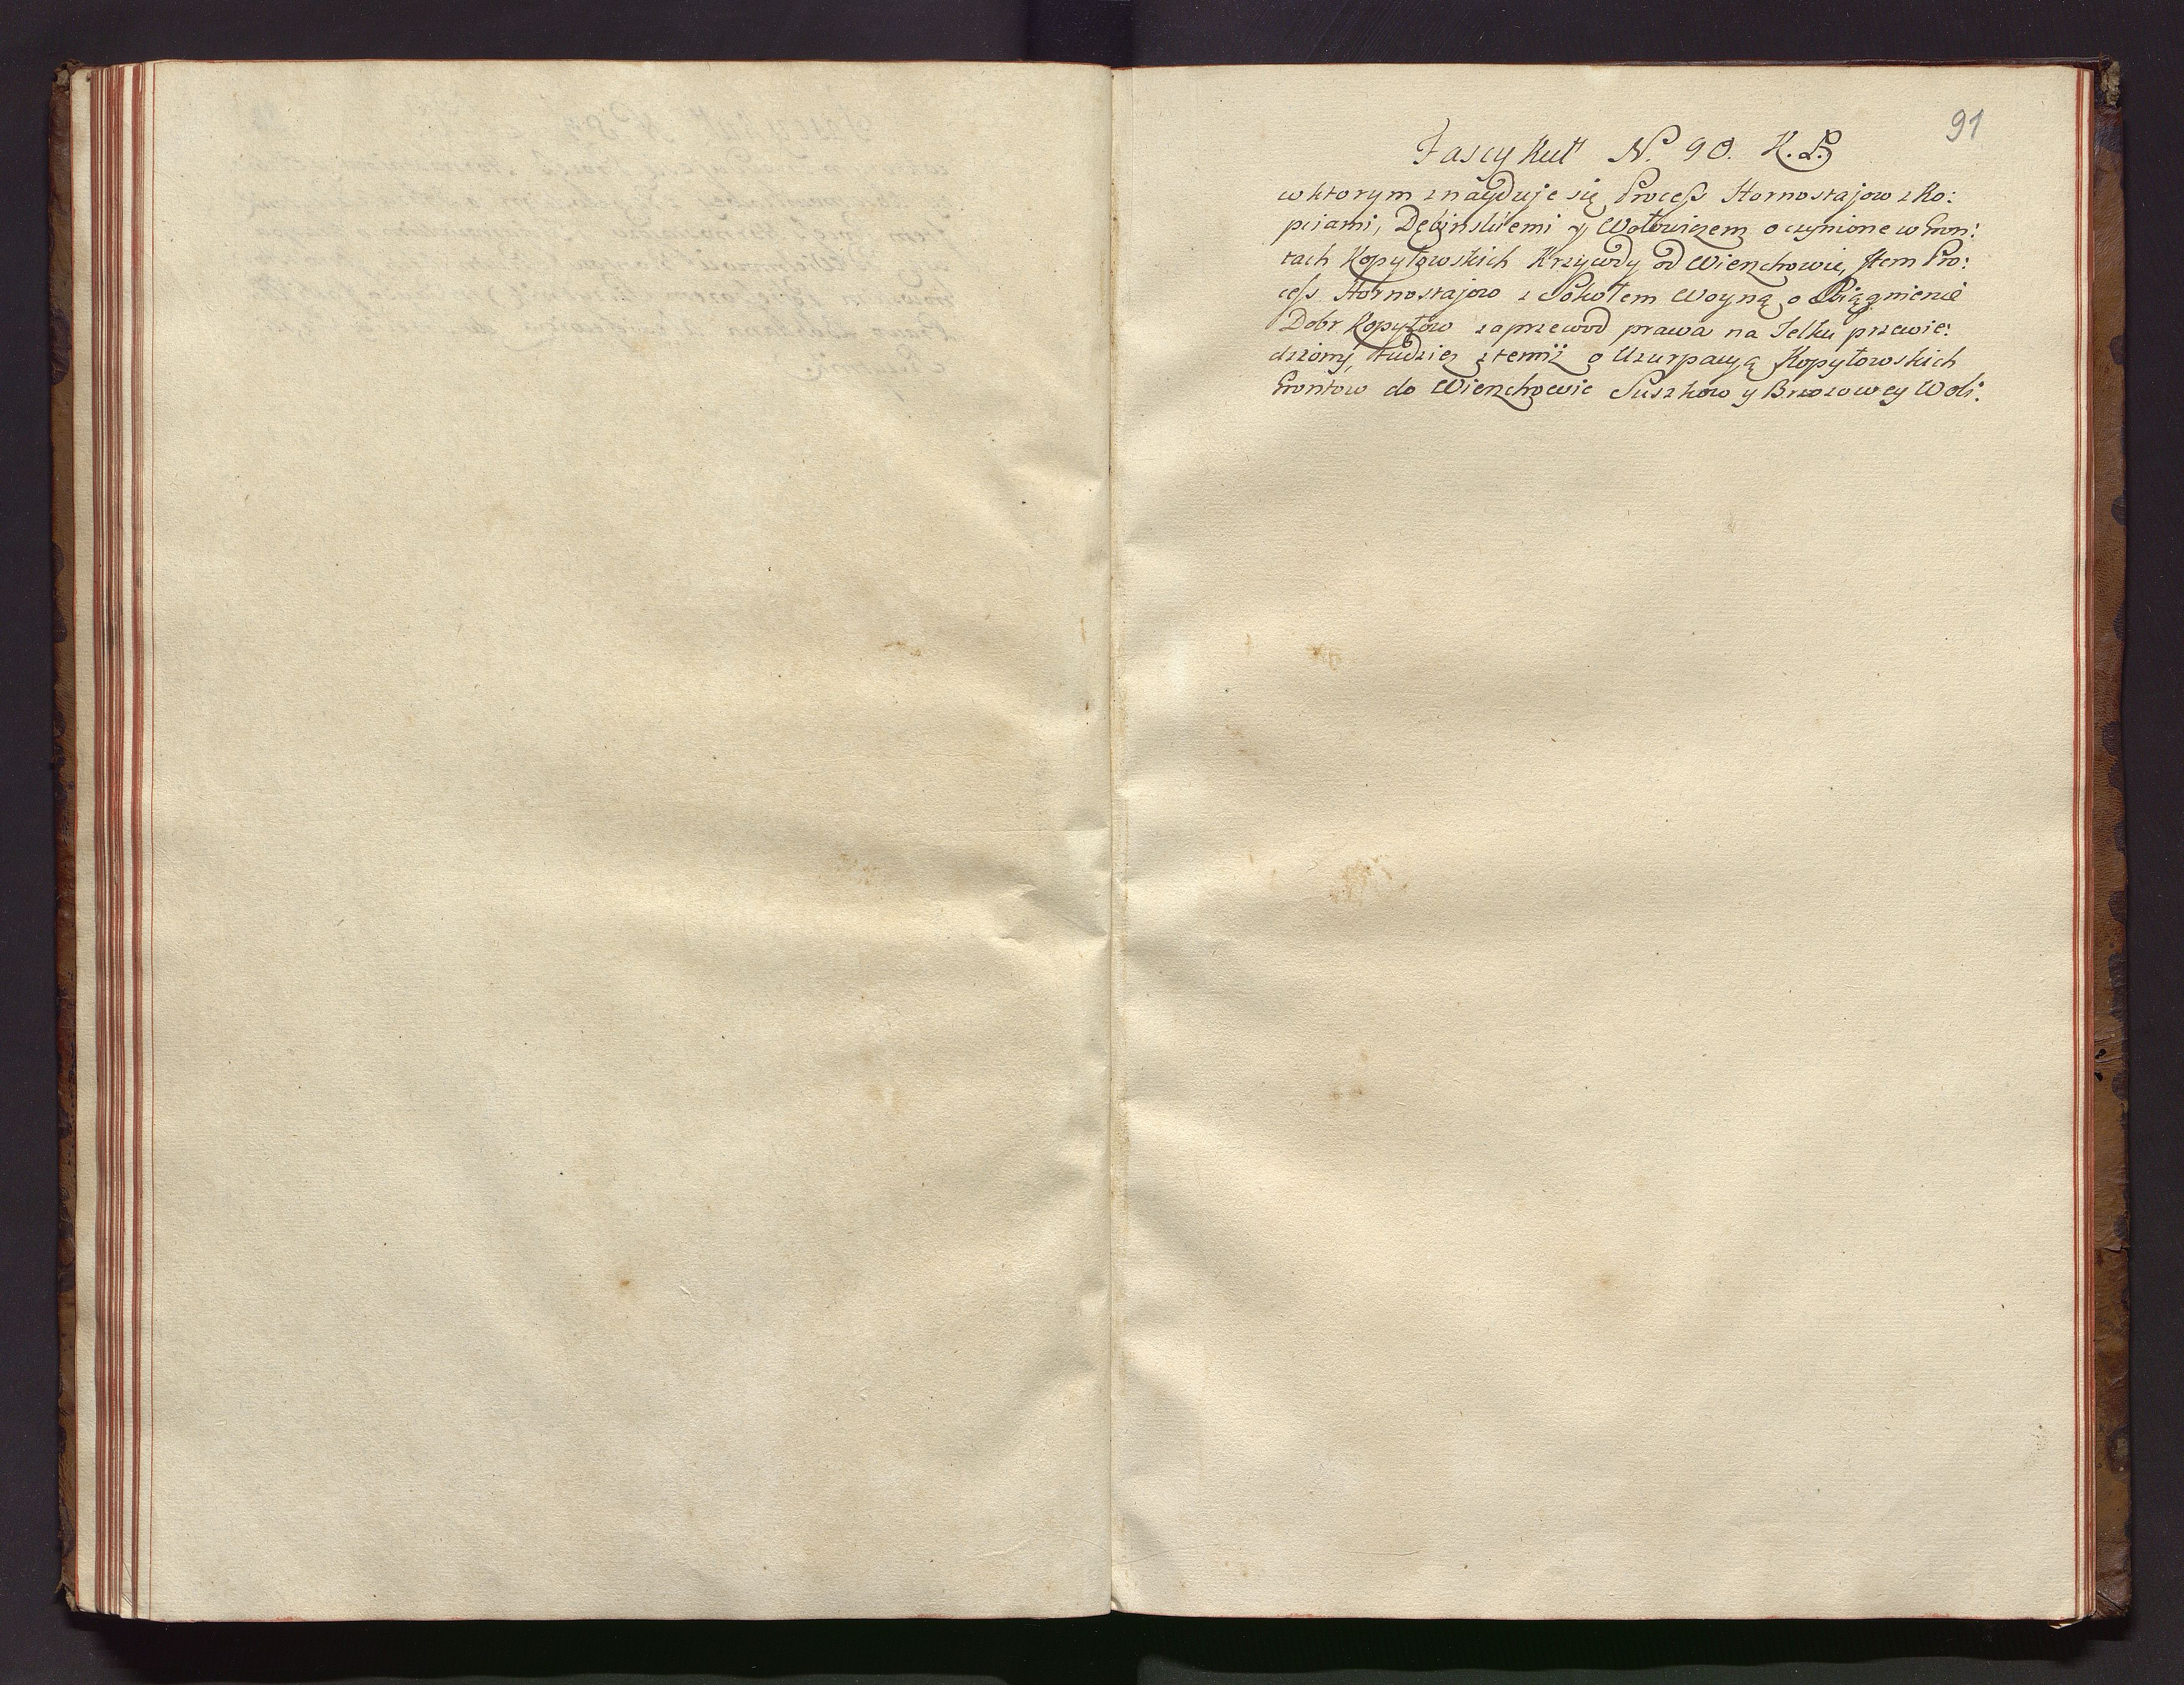 91
Fascykuł N. 90. K. B
w ktorym znayduje się Process Hornostajow z Ko:
pciami, Dębinskiemi y Wołłowiczem o czynione w Gron:
tach Kopytowskich Krzywdy od Wierzchowic, Jtem Pro:
cess Hornostajow z Sokołem Woyną o
Dobr Kopytow za przewod prawa na Jelku przewie:
dziony, tudziez z temiż o Uzurpacyą Kopytowskich
Grontow do Wierzchowic Suszkow y Brzozowey Woli.